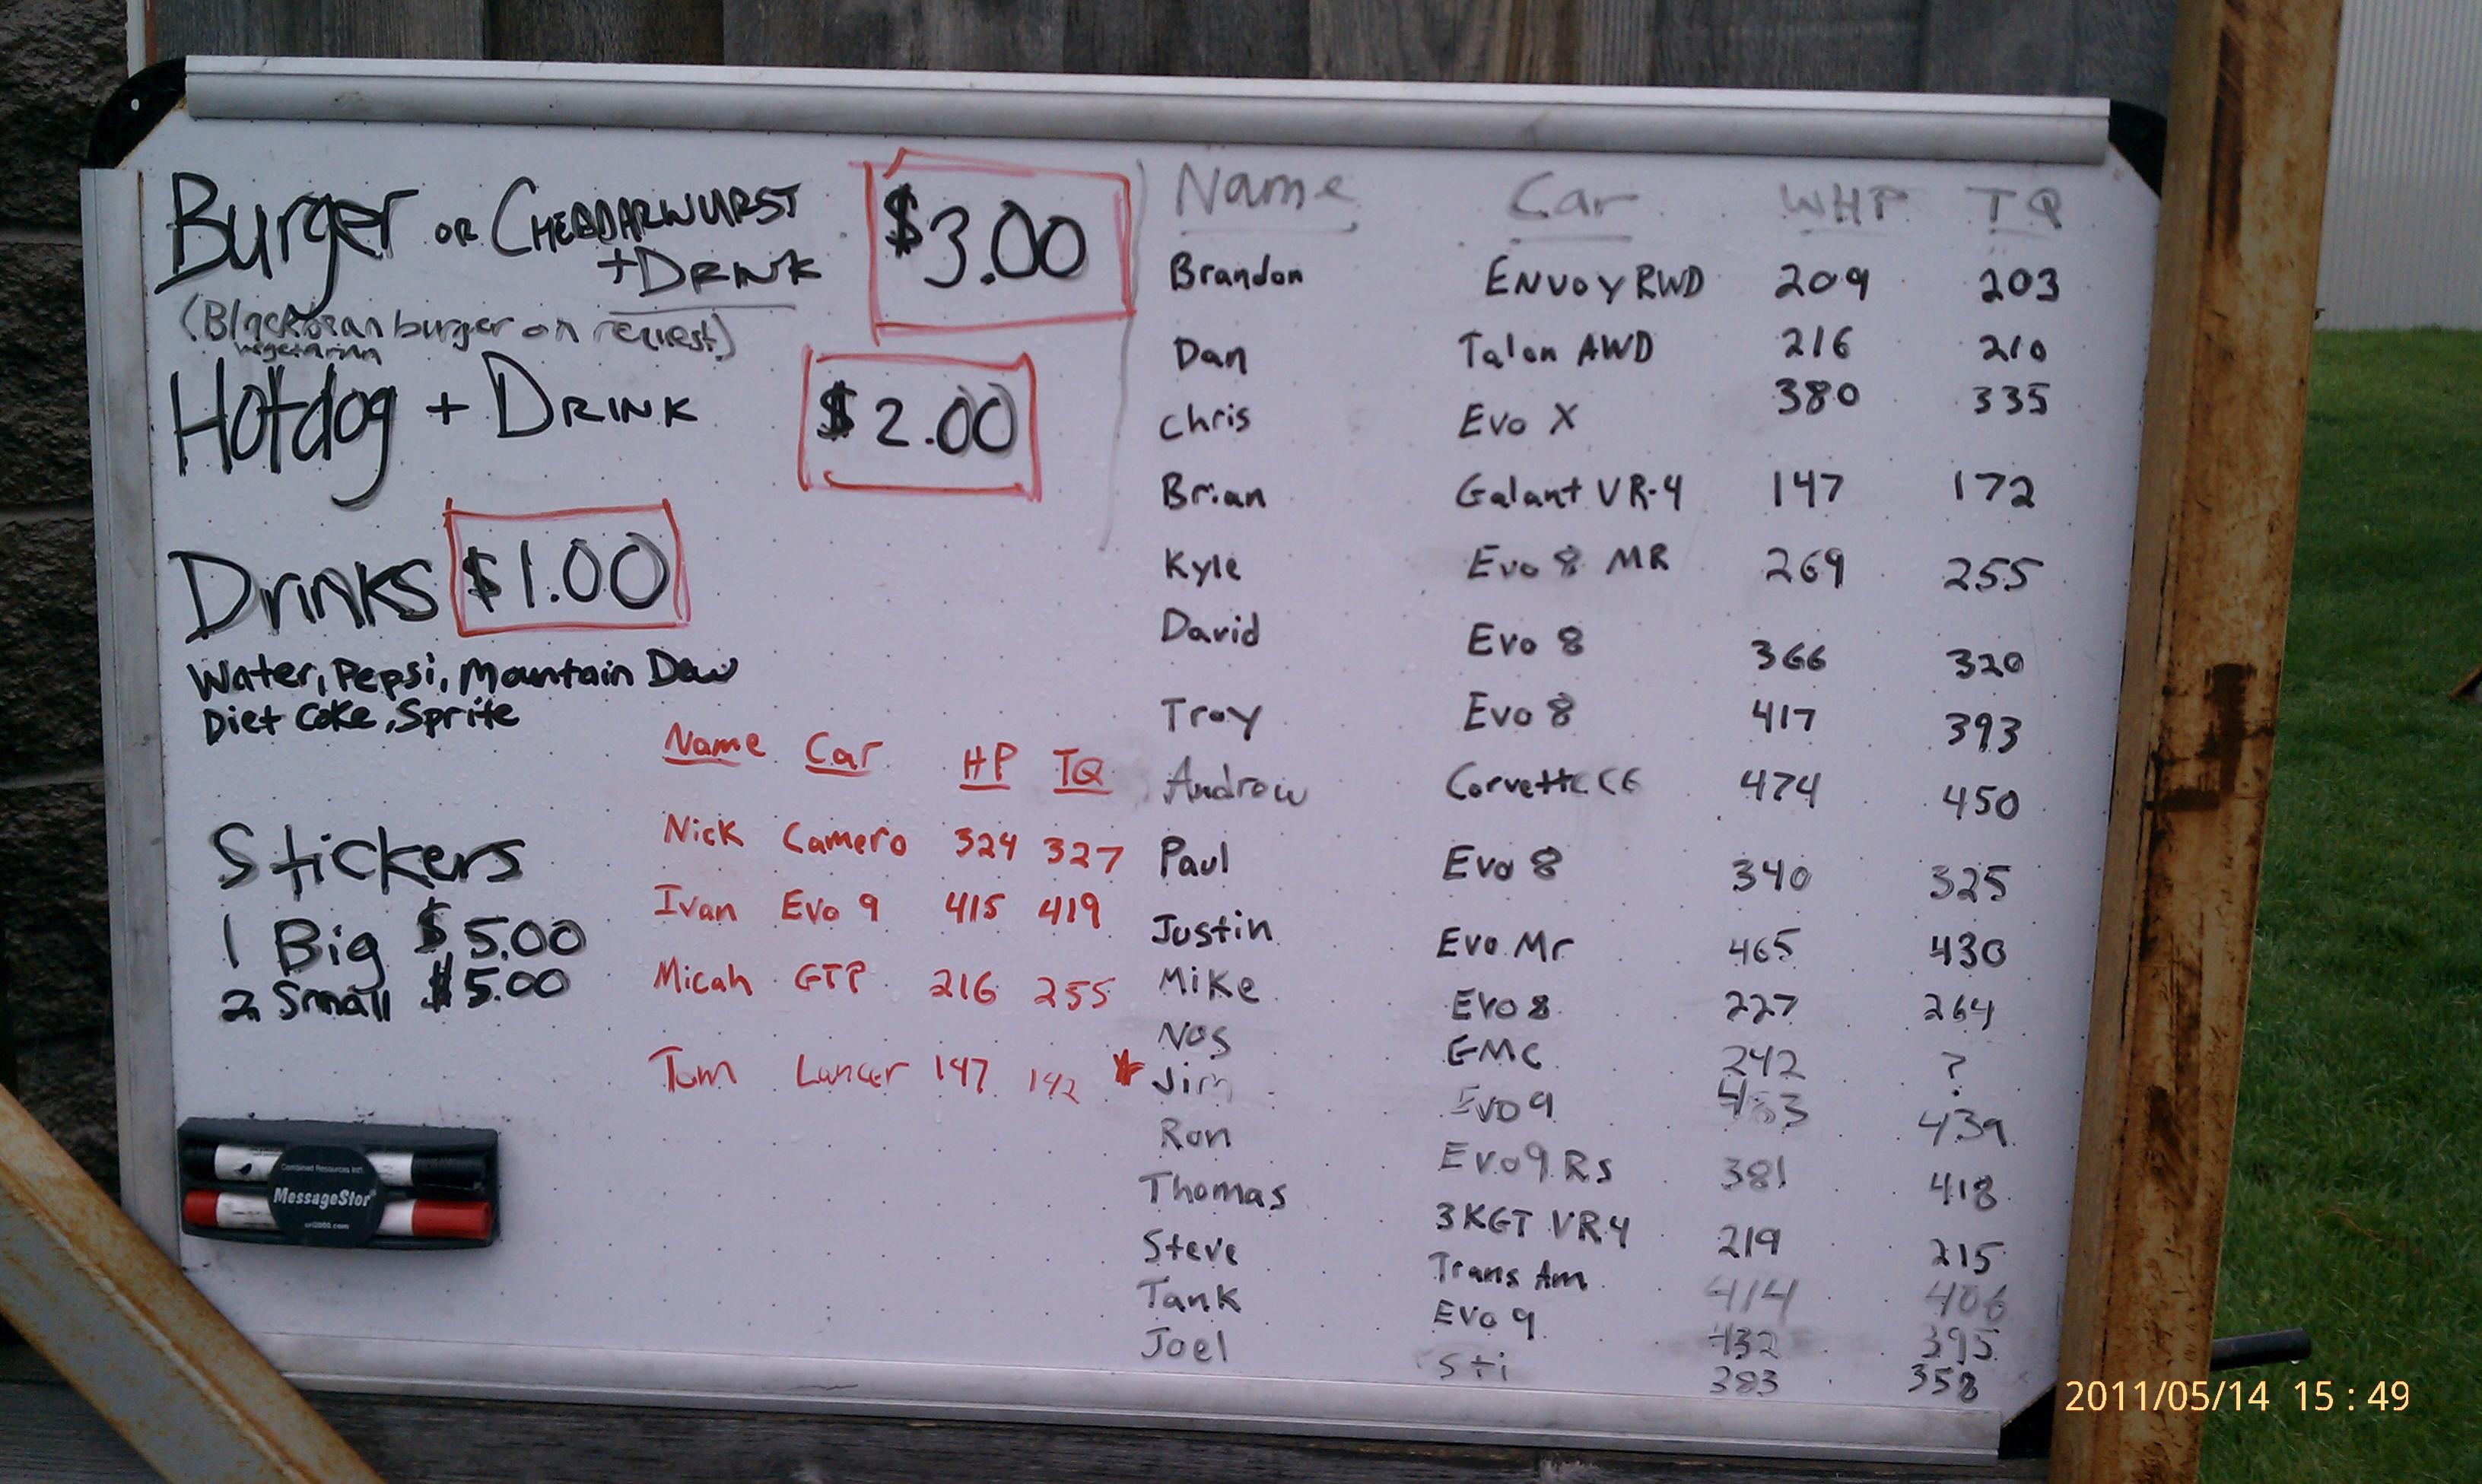 Burger OR CHEDDARWURST
+DRINK
$3.00
(Blackbean burger on request)
vegetarian
Hotdog + DRINK $2.00
Drinks $1.00
Water, Pepsi, Mountain Dew
Diet Coke, Sprite
Stickers
1 Big $5.00
2 Small $5.00
Name Car HP TQ
Nick Camero 324 327
Ivan Evo 9 415 419
Micah GTP 216 255
Tom Lancer 147 142 *
Name Car WHP TQ
Brandon Envoy RWD 209 203
Dan Talon AWD 216 210
Chris Evo X 380 335
Brian Galant VR-4 147 172
Kyle Evo 8 MR 269 255
David Evo 8 366 320
Troy Evo 8 417 393
Andrew Corvette C6 474 450
Paul Evo 8 340 325
Justin Evo Mr 465 430
Mike Evo 8 227 264
Nos GMC 242 ?
Jim Evo 9 439
Ron Evo 9 Rs 381 418
Thomas 3KGT VR4 219 215
Steve Trans Am 414 406
Tank Evo 9 432 395
Joel Sti 383 358
Combined Resources Int'l.
MessageStor
cri2000.com
2011/05/14 15:49